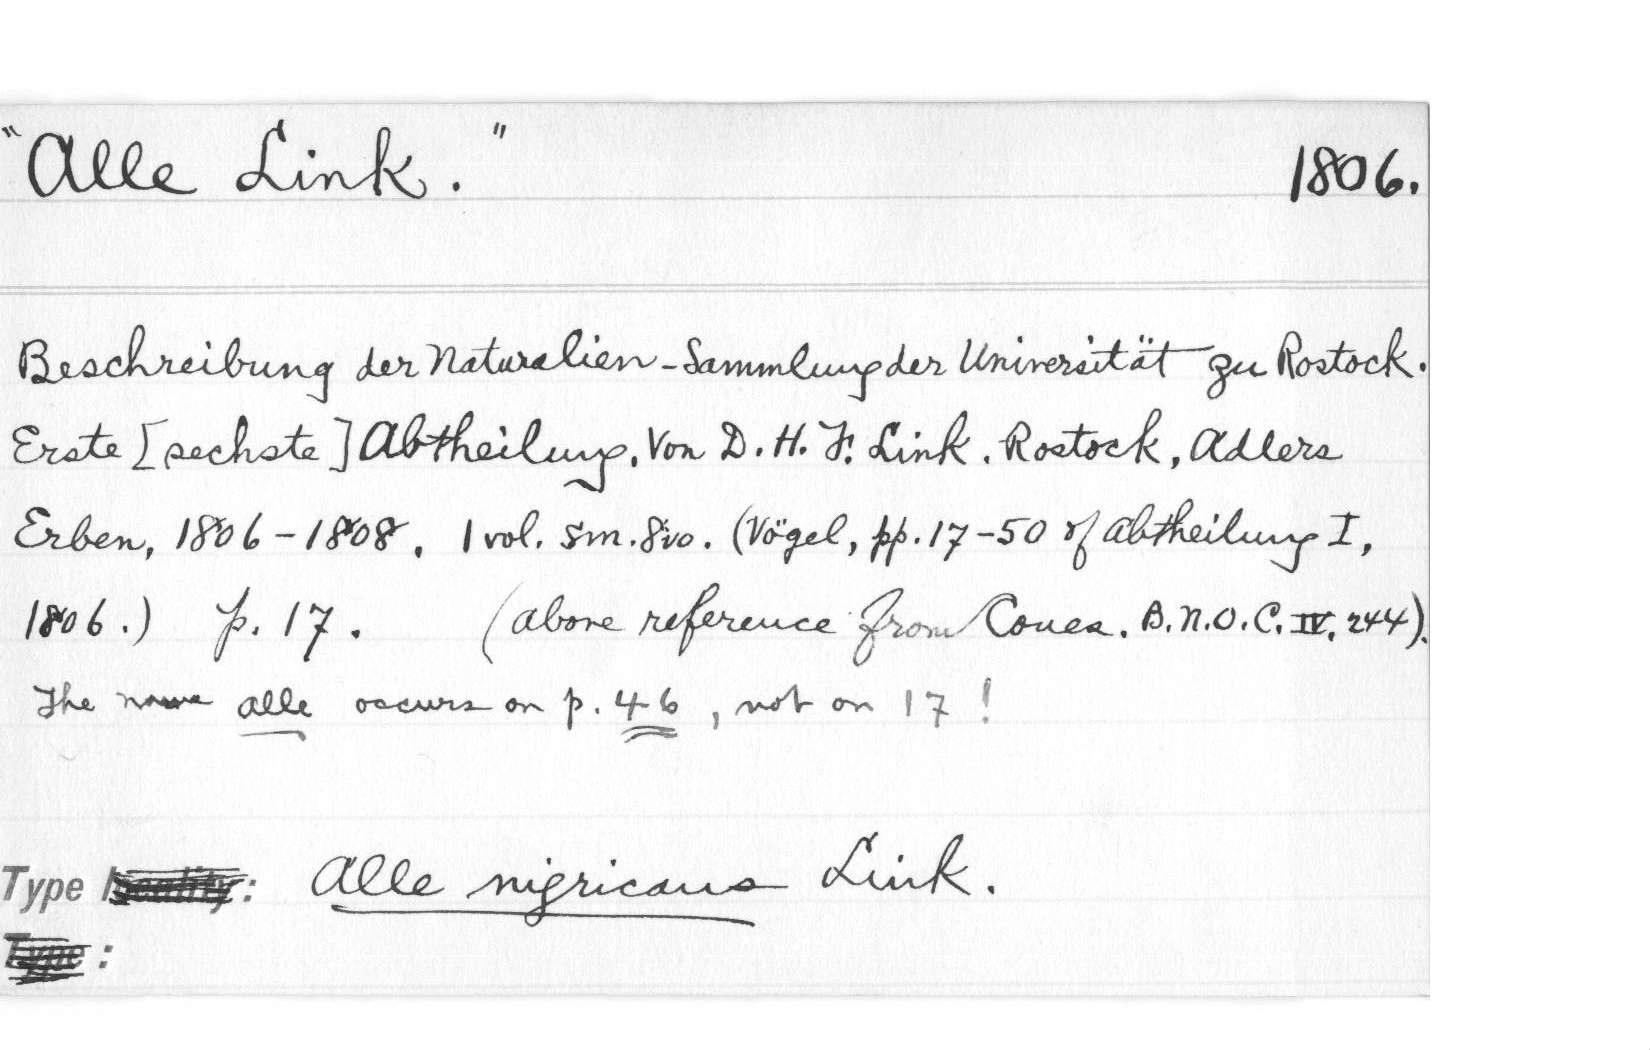 "Alle Link." 1806.
Beschreibung der Naturalien-Sammlung der Universität zu Rostock.
Erste [sechste] Abtheilung. Von D. H. F. Link. Rostock, Adlers
Erben, 1806-1808. 1 vol. sm. 8vo. (Vögel, pp. 17-50 of Abtheilung I,
1806.) p. 17. (above reference from Coues. B.N.O.C. IV. 244).
The name alle occurs on p. 46, not on 17!
Type locality: Alle nigricans Link.
Type: